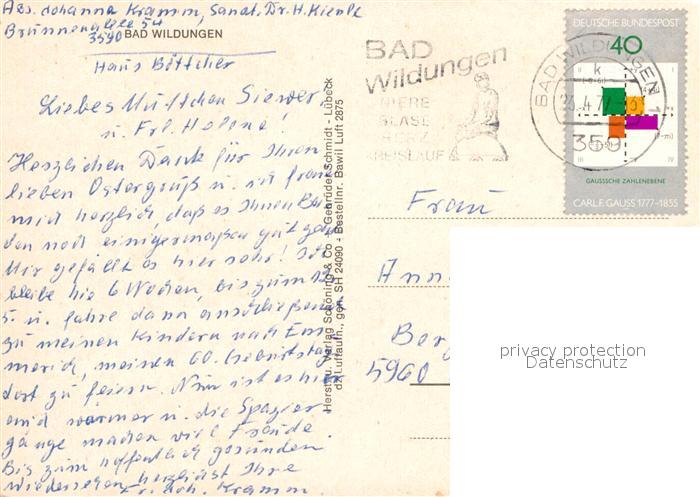 Abs. Johanna Kramm, Sanat. Dr. H. Kienle
Brunnenallee 54
3590 BAD WILDUNGEN
Haus Böttcher
Liebes Muttchen Siewert
u. Frl. Helene!
Herzlichen Dank für Ihren
lieben Ostergruß u. ich freue
mich herzlich, daß es Ihnen Bei
den noch einigermaßen gut geht
Mir gefällt es hier sehr! Ich
bleibe hie 6 Wochen, bis zum 12.
5. u. fahre dann anschließend
zu meinen Kindern nach Em
merich, meinen 60. Geburtstag
dort zu feiern. Nun ist es hier
auch wärmer u. die Spazier
gänge machen viel Freude.
Bis zum hoffentlich gesunden
Wiedersehen herzlichst Ihre
Fr. Joh. Kramm.
Herst. u. Verlag Schöning & Co + Gebrüder Schmidt - Lübeck
dz. Luftaufn., gen. SH 24090 - Bestellnr. Bawil Luft 2875
BAD
Wildungen
NIERE
BLASE
KREISLAUF
BAD WILDUNGEN
3590
DEUTSCHE BUNDESPOST
40
GAUSSSCHE ZAHLENEBENE
CARL F. GAUSS 1777-1855
Frau
Ann
Berg
5960
privacy protection
Datenschutz